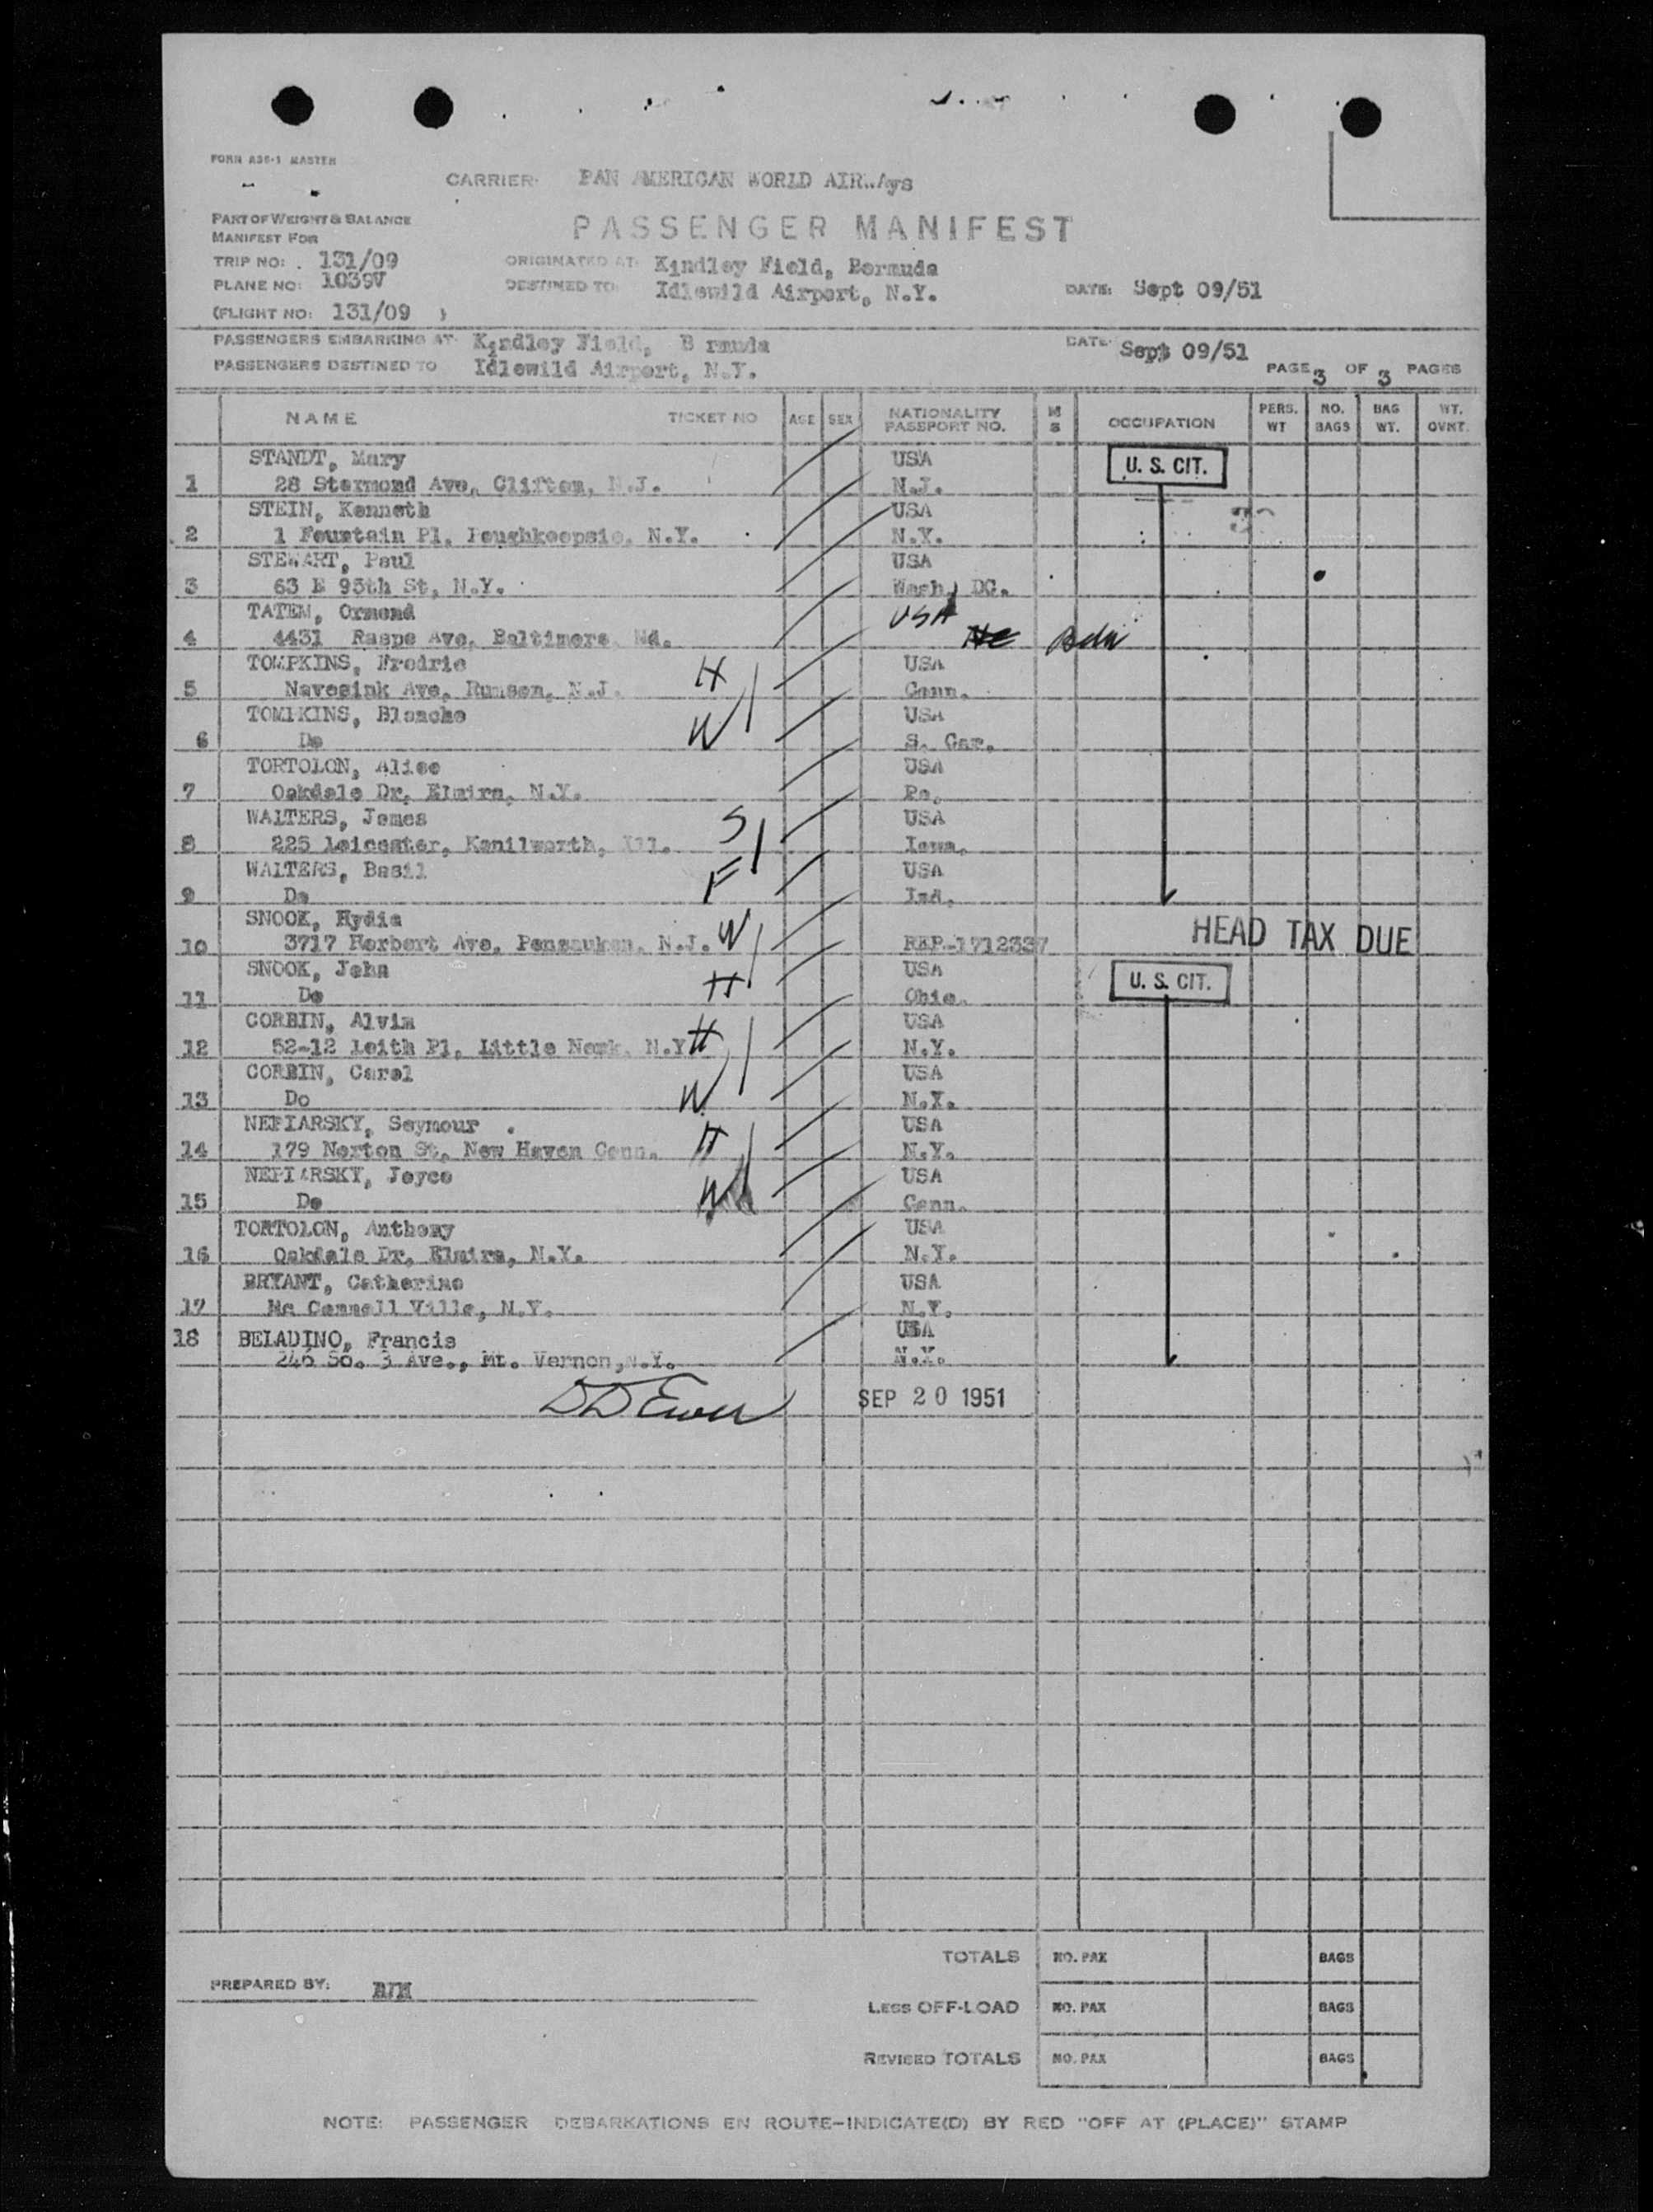 FORM A36-1 MASTER
CARRIER: PAN AMERICAN WORLD AIRWAys
PART OF WEIGHT & BALANCE
MANIFEST FOR
PASSENGER MANIFEST
TRIP NO: 131/09 ORIGINATED AT: Kindley Field, Bermuda
PLANE NO: 1039V DESTINED TO: Idlewild Airport, N.Y. DATE: Sept 09/51
(FLIGHT NO: 131/09 )
PASSENGERS EMBARKING AT: Kindley Field, B rmuda DATE: Sept 09/51
PASSENGERS DESTINED TO Idlewild Airport, N.Y. PAGE 3 OF 3 PAGES
NAME TICKET NO AGE SEX NATIONALITY PASSPORT NO. M S OCCUPATION PERS. WT NO. BAGS BAG WT. WT. OVNT.
STANDT, Mary USA U. S. CIT.
1 28 Stermond Ave, Clifton, N.J. N.J.
STEIN, Kenneth USA
2 1 Fountain Pl, Poughkeepsie, N.Y. N.Y.
STEWART, Paul USA
3 63 E 95th St, N.Y. Wash, DC.
TATEM, Ormond USA
4 4431 Raspe Ave, Baltimore, Md. Bda
TOMPKINS, Fredric USA
5 Navesink Ave, Rumson, N.J. H Conn.
TOMPKINS, Blanche USA
6 Do W S. Car.
TORTOLON, Alice USA
7 Oakdale Dr, Elmira, N.Y. Pa.
WALTERS, James S USA
8 225 Leicester, Kenilworth, Ill. Iowa.
WALTERS, Basil F USA
9 Do Ind.
SNOOK, Hydia HEAD TAX DUE
10 3717 Herbert Ave, Pensauken, N.J. W REP-1712337
SNOOK, John USA U. S. CIT.
11 Do H Ohio.
CORBIN, Alvin USA
12 52-12 Leith Pl, Little Neck, N.Y. H N.Y.
CORBIN, Carol USA
13 Do W N.Y.
NEPIARSKY, Seymour USA
14 179 Norton St, New Haven Conn. H N.Y.
NEPIARSKY, Joyce USA
15 Do W Conn.
TORTOLON, Anthony USA
16 Oakdale Dr, Elmira, N.Y. N.Y.
BRYANT, Catherine USA
17 Mc Connell Ville, N.Y. N.Y.
18 BELADINO, Francis USA
246 So. 3 Ave., Mt. Vernon, N.Y. N.Y.
SEP 20 1951
TOTALS NO. PAX BAGS
PREPARED BY:
LESS OFF-LOAD NO. PAX BAGS
REVISED TOTALS NO. PAX BAGS
NOTE: PASSENGER DEBARKATIONS EN ROUTE-INDICATE(D) BY RED "OFF AT (PLACE)" STAMP